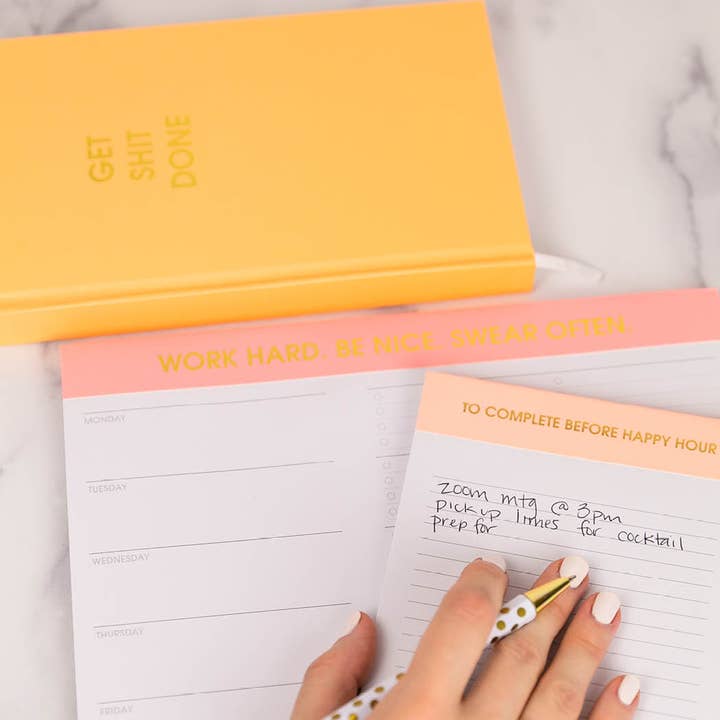 GET
SHIT
DONE
WORK HARD. BE NICE. SWEAR OFTEN.
MONDAY
TUESDAY
WEDNESDAY
THURSDAY
FRIDAY
TO COMPLETE BEFORE HAPPY HOUR
zoom mtg @ 3pm
pick up limes for cocktail
prep for